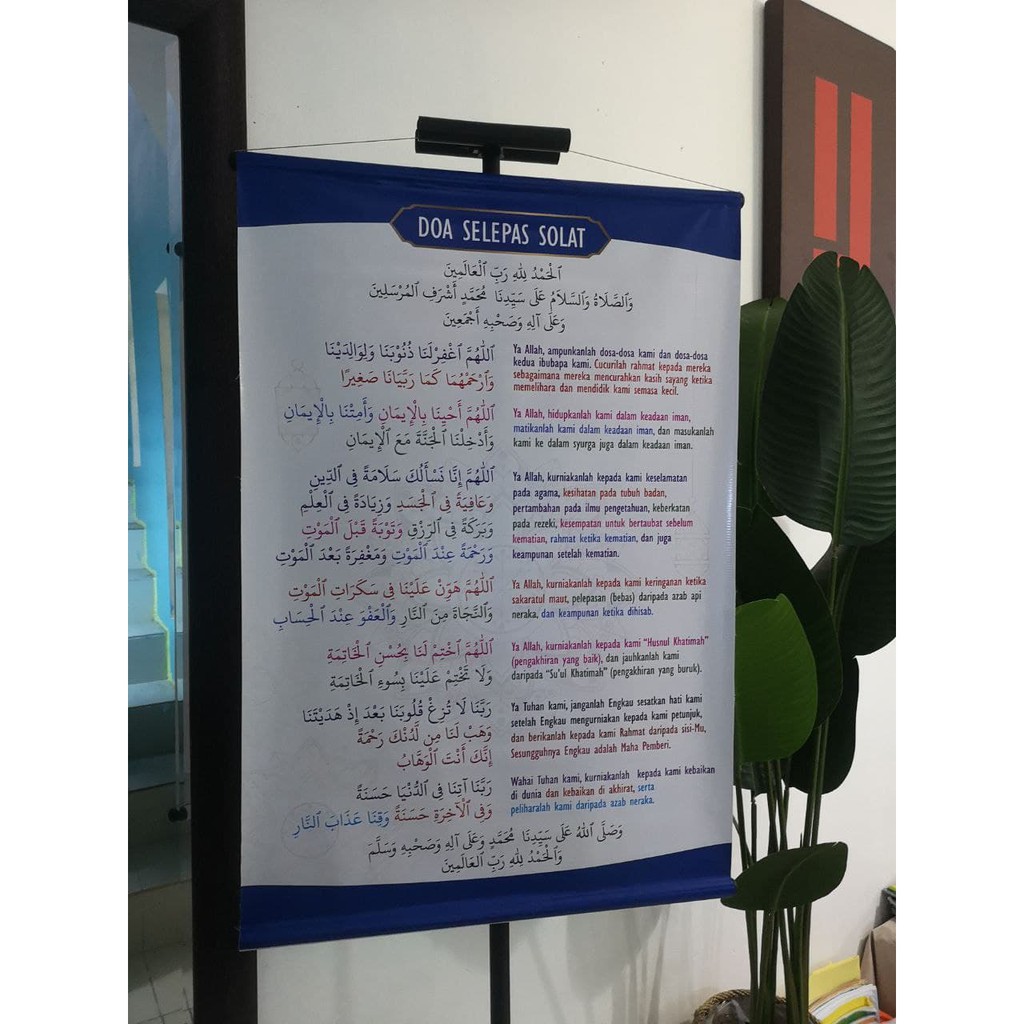 DOA SELEPAS SOLAT
اَلْحَمْدُ لِلّٰهِ رَبِّ الْعَالَمِينَ
وَالصَّلَاةُ وَالسَّلَامُ عَلَى سَيِّدِنَا مُحَمَّدٍ أَشْرَفِ الْمُرْسَلِينَ
وَعَلَى آلِهِ وَصَحْبِهِ أَجْمَعِينَ
اَللّٰهُمَّ اغْفِرْلَنَا ذُنُوْبَنَا وَلِوَالِدَيْنَا
وَارْحَمْهُمَا كَمَا رَبَّيَانَا صَغِيرًا
Ya Allah, ampunkanlah dosa-dosa kami dan dosa-dosa
kedua ibubapa kami. Cucurilah rahmat kepada mereka
sebagaimana mereka mencurahkan kasih sayang ketika
memelihara dan mendidik kami semasa kecil.
اَللّٰهُمَّ أَحْيِنَا بِالْإِيمَانِ وَأَمِتْنَا بِالْإِيمَانِ
وَأَدْخِلْنَا الْجَنَّةَ مَعَ الْإِيمَانِ
Ya Allah, hidupkanlah kami dalam keadaan iman,
matikanlah kami dalam keadaan iman, dan masukanlah
kami ke dalam syurga juga dalam keadaan iman.
اَللّٰهُمَّ إِنَّا نَسْأَلُكَ سَلَامَةً فِي الدِّينِ
وَعَافِيَةً فِي الْجَسَدِ وَزِيَادَةً فِي الْعِلْمِ
وَبَرَكَةً فِي الرِّزْقِ وَتَوْبَةً قَبْلَ الْمَوْتِ
وَرَحْمَةً عِنْدَ الْمَوْتِ وَمَغْفِرَةً بَعْدَ الْمَوْتِ
Ya Allah, kurniakanlah kepada kami keselamatan
pada agama, kesihatan pada tubuh badan,
pertambahan pada ilmu pengetahuan, keberkatan
pada rezeki, kesempatan untuk bertaubat sebelum
kematian, rahmat ketika kematian, dan juga
keampunan setelah kematian.
اَللّٰهُمَّ هَوِّنْ عَلَيْنَا فِي سَكَرَاتِ الْمَوْتِ
وَالنَّجَاةَ مِنَ النَّارِ وَالْعَفْوَ عِنْدَ الْحِسَابِ
Ya Allah, kurniakanlah kepada kami keringanan ketika
sakaratul maut, pelepasan (bebas) daripada azab api
neraka, dan keampunan ketika dihisab.
اَللّٰهُمَّ اخْتِمْ لَنَا بِحُسْنِ الْخَاتِمَةِ
وَلَا تَخْتِمْ عَلَيْنَا بِسُوءِ الْخَاتِمَةِ
Ya Allah, kurniakanlah kepada kami “Husnul Khatimah”
(pengakhiran yang baik), dan jauhkanlah kami
daripada “Su'ul Khatimah” (pengakhiran yang buruk).
رَبَّنَا لَا تُزِغْ قُلُوبَنَا بَعْدَ إِذْ هَدَيْتَنَا
وَهَبْ لَنَا مِن لَّدُنْكَ رَحْمَةً
إِنَّكَ أَنْتَ الْوَهَّابُ
Ya Tuhan kami, janganlah Engkau sesatkan hati kami
setelah Engkau mengurniakan kepada kami petunjuk,
dan berikanlah kepada kami Rahmat daripada sisi-Mu,
Sesungguhnya Engkau adalah Maha Pemberi.
رَبَّنَا آتِنَا فِي الدُّنْيَا حَسَنَةً
وَفِي الْآخِرَةِ حَسَنَةً وَقِنَا عَذَابَ النَّارِ
Wahai Tuhan kami, kurniakanlah kepada kami kebaikan
di dunia dan kebaikan di akhirat, serta
peliharalah kami daripada azab neraka.
وَصَلَّى اللهُ عَلَى سَيِّدِنَا مُحَمَّدٍ وَعَلَى آلِهِ وَصَحْبِهِ وَسَلَّمَ
وَالْحَمْدُ لِلّٰهِ رَبِّ الْعَالَمِينَ